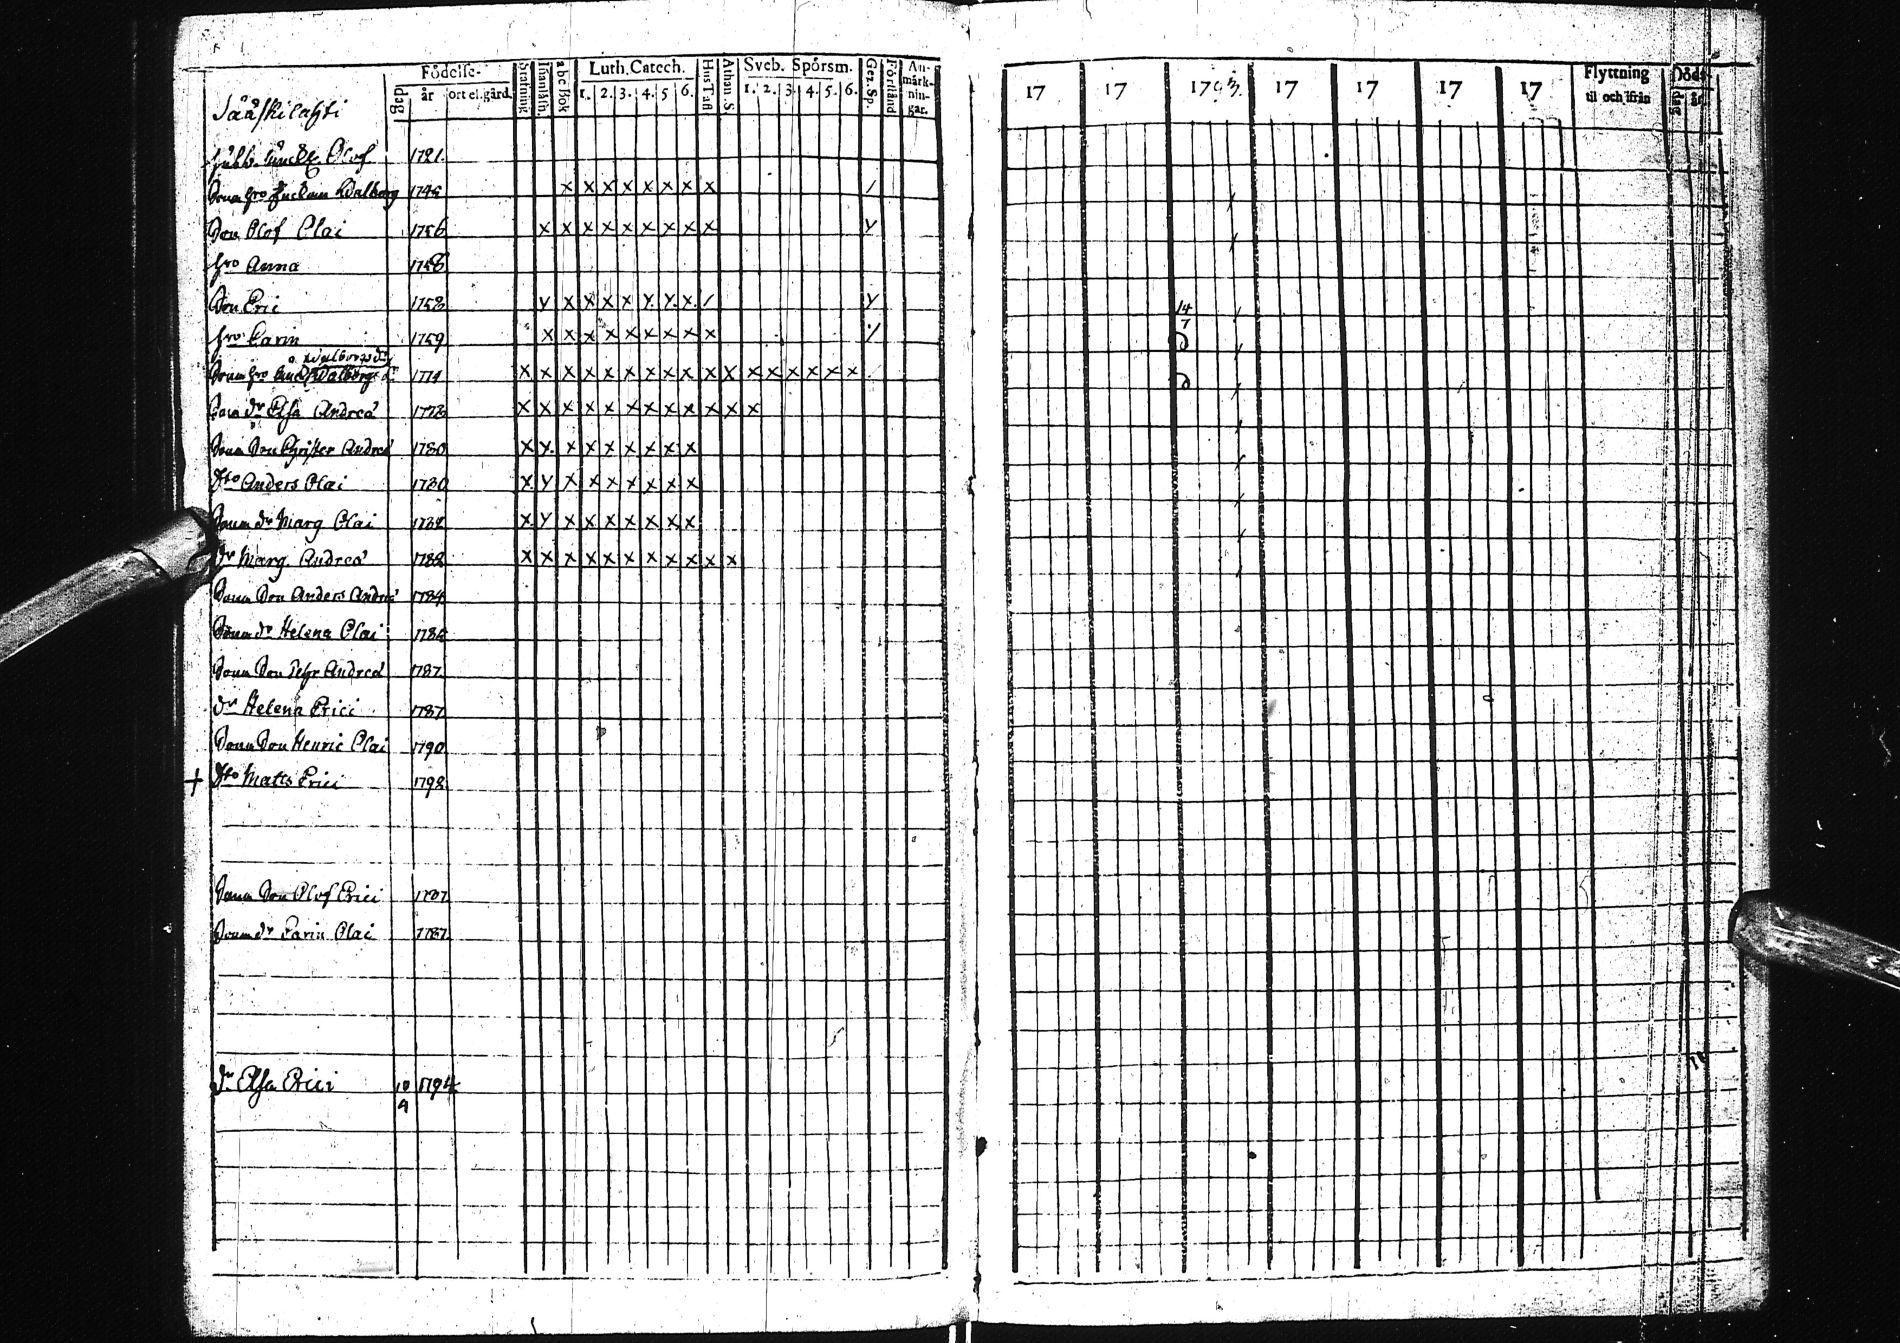 Födelse-
dag
år
ort el. gård.
Stafning
Innanläsn.
abc Bok
Luth. Catech.
1. 2. 3. 4. 5 6.
Hus Tafl
Athan. S.
Sveb. Spörsm.
1. 2. 3. 4. 5. 6.
Gez. Sp.
Förstånd
An-
märk-
nin-
gar.
17 17 1793. 17 17 17 17
Flyttning
til och ifrån
Död
dag
år
Olof 1721.
Walborg
Son Olof Olai 1756
hro Anna 1758
Son Eric 1758
14
7
hro Carin 1759
Walborgs dr
Walborgs dr 1774
dr Elsa Andreæ 1778
Son Christer Andreæ 1780
Dto Anders Olai 1780
dr Marg Olai 1782
dr Marg. Andreæ 1788
Son Anders Andreæ 1784
dr Helena Olai 1784
Son Pehr Andreæ 1787
dr Helena Erici 1787
Son Henric Olai 1790
+ Dto Matts Erici 1792
Son Olof Erici 1787
dr Carin Olai 1787
dr Elsa Erici 10 1794
4